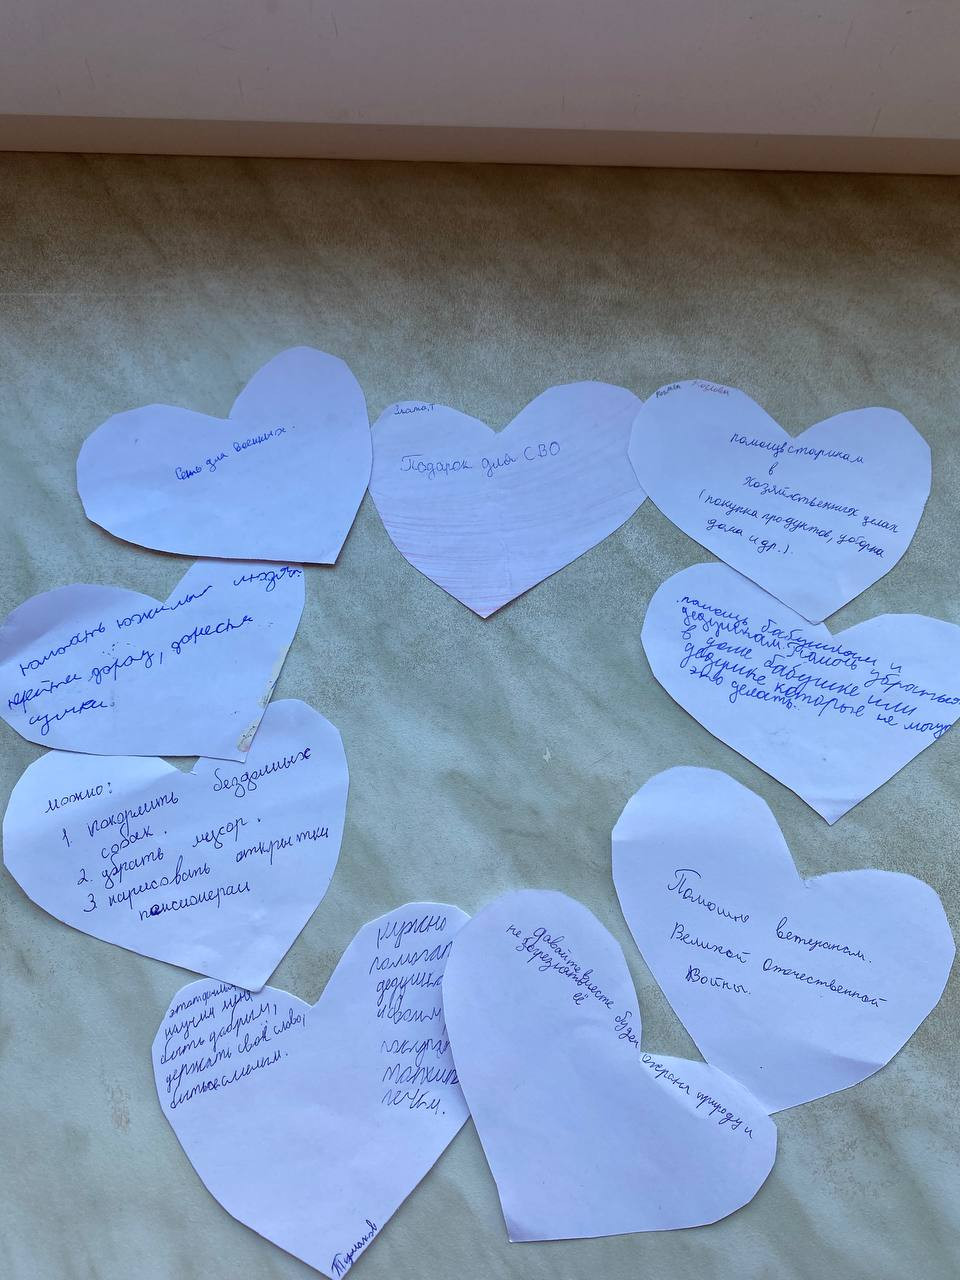 Сеть для военных.
Злата,Т
Подарок для СВО
Козлова
помощь старикам
в
хозяйственных целях
(покупка продуктов, уборка
дома и др.).
помогать пожилым людям
перейти дорогу, донести
сумки.
помощь бабушкам и
дедушкам. Помочь убраться
в доме бабушке или
дедушке которые не могут
это делать.
можно:
1. покормить бездомных
собак.
2. убрать мусор.
3. нарисовать открытки
пенсионерам
Помощь ветеранам.
Великой Отечественной
Войны.
научил меня
быть добрым,
держать своё слово,
быть смелым.
Нужно
помогат
дедушка
и своим
Давайте вместе будем охранять природу и
не загрязнять
её